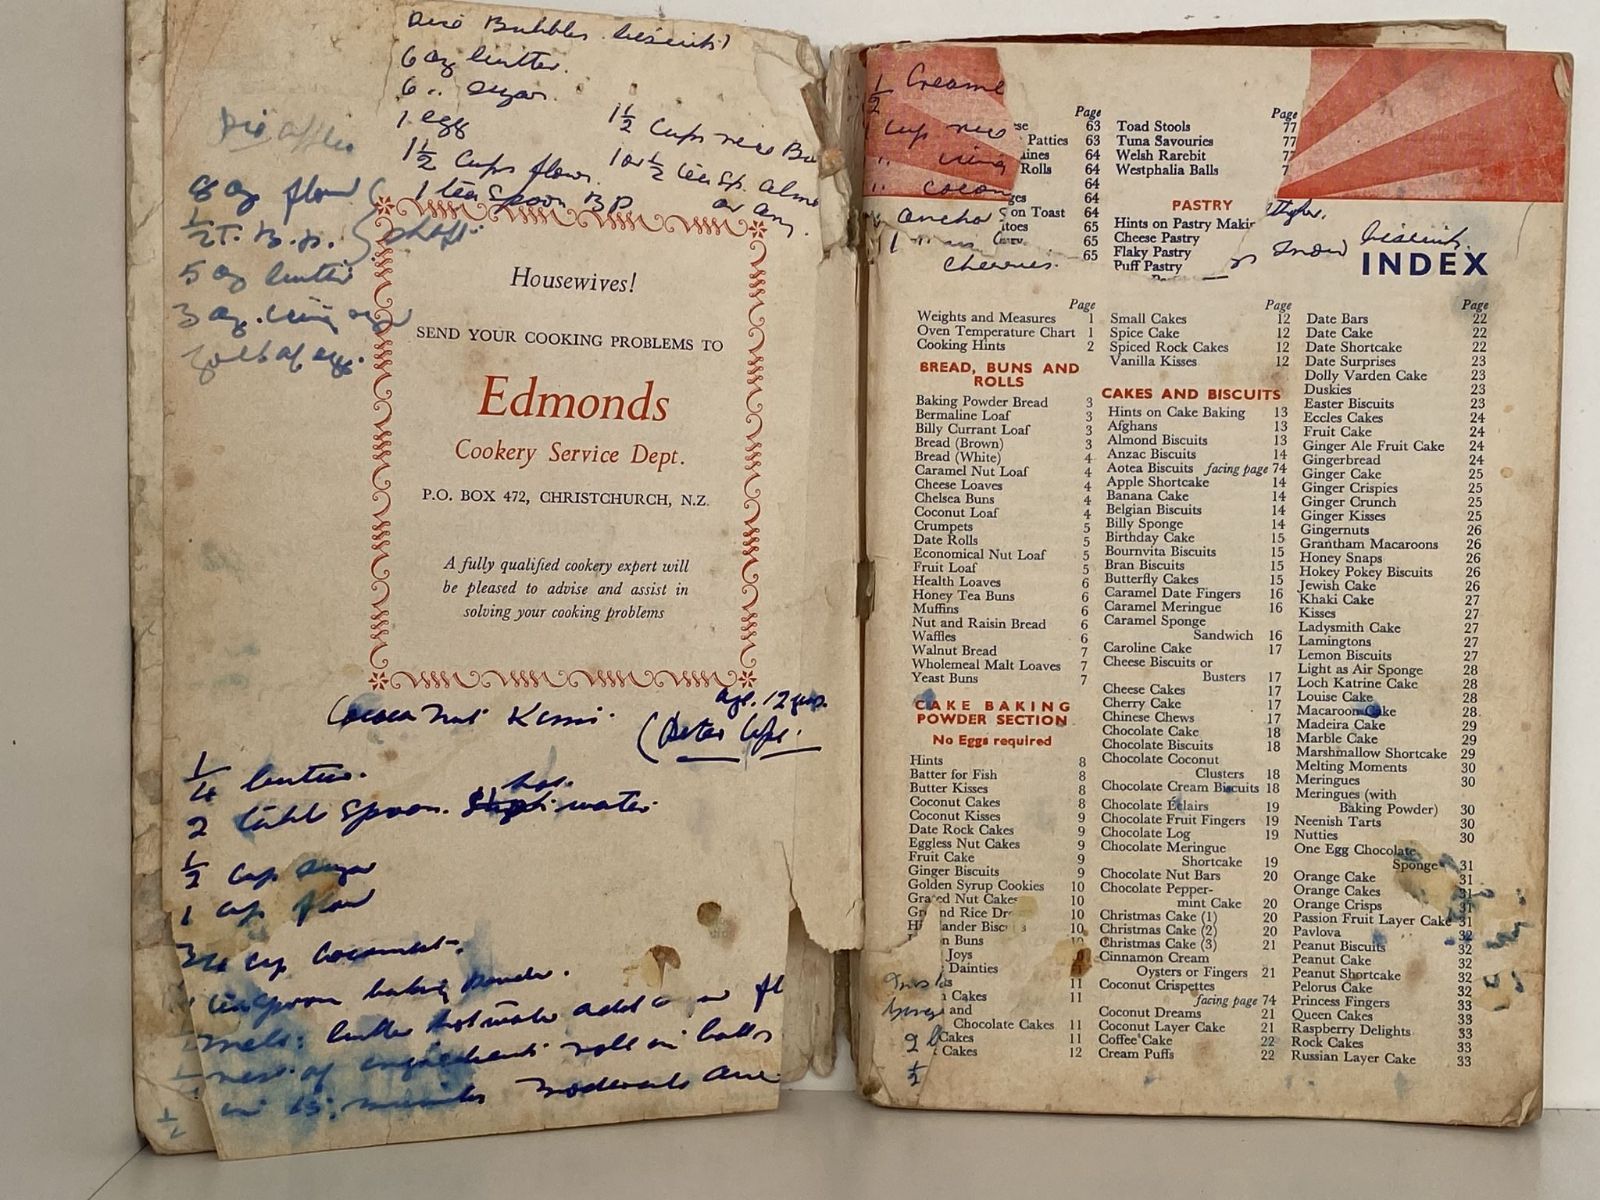 Rice Bubbles biscuits
6 oz butter.
6 .. sugar.
1 egg
1½ Cups flour.
1 tea Spoon B P
1½ Cups rice Bu
1 or ½ tea sp. almo
or any.
8 oz flour
½ T. B. p.
5 oz butter
3 oz.
Housewives!
SEND YOUR COOKING PROBLEMS TO
Edmonds
Cookery Service Dept.
P.O. BOX 472, CHRISTCHURCH, N.Z.
A fully qualified cookery expert will
be pleased to advise and assist in
solving your cooking problems
Cocoa nut Kisses.
age. 12 years.
(Peter
¼ butter.
hot
2 table Spoon. water.
½ cup sugar
1 cup flour
¾ cup Coconut.
teaspoon baking Powder.
melt butter hot water add
rest of ingredients roll in balls
15 minutes moderate
½ Creame
cup rice
" icing
" cocon
cherries.
snow biscuits.
Page
63
Patties 63
64
Rolls 64
64
64
on Toast 64
65
65
Page
Toad Stools 77
Tuna Savouries 77
Welsh Rarebit 77
Westphalia Balls 7
PASTRY
Hints on Pastry Makin
Cheese Pastry
Flaky Pastry
Puff Pastry
INDEX
Page
Weights and Measures 1
Oven Temperature Chart 1
Cooking Hints 2
BREAD, BUNS AND
ROLLS
Baking Powder Bread 3
Bermaline Loaf 3
Billy Currant Loaf 3
Bread (Brown) 3
Bread (White) 4
Caramel Nut Loaf 4
Cheese Loaves 4
Chelsea Buns 4
Coconut Loaf 4
Crumpets 5
Date Rolls 5
Economical Nut Loaf 5
Fruit Loaf 5
Health Loaves 6
Honey Tea Buns 6
Muffins 6
Nut and Raisin Bread 6
Waffles 6
Walnut Bread 7
Wholemeal Malt Loaves 7
Yeast Buns 7
CAKE BAKING
POWDER SECTION
No Eggs required
Hints 8
Batter for Fish 8
Butter Kisses 8
Coconut Cakes 8
Coconut Kisses 9
Date Rock Cakes 9
Eggless Nut Cakes 9
Fruit Cake 9
Ginger Biscuits 9
Golden Syrup Cookies 10
Nut Cakes 10
Rice 10
10
Buns 10
Joys
Dainties
11
Cakes 11
and
Chocolate Cakes 11
Cakes 11
Cakes 12
Page
Small Cakes 12
Spice Cake 12
Spiced Rock Cakes 12
Vanilla Kisses 12
CAKES AND BISCUITS
Hints on Cake Baking 13
Afghans 13
Almond Biscuits 13
Anzac Biscuits 14
Aotea Biscuits facing page 74
Apple Shortcake 14
Banana Cake 14
Belgian Biscuits 14
Billy Sponge 14
Birthday Cake 15
Bournvita Biscuits 15
Bran Biscuits 15
Butterfly Cakes 15
Caramel Date Fingers 16
Caramel Meringue 16
Caramel Sponge
Sandwich 16
Caroline Cake 17
Cheese Biscuits or
Busters 17
Cheese Cakes 17
Cherry Cake 17
Chinese Chews 17
Chocolate Cake 18
Chocolate Biscuits 18
Chocolate Coconut
Clusters 18
Chocolate Cream Biscuits 18
Chocolate Éclairs 19
Chocolate Fruit Fingers 19
Chocolate Log 19
Chocolate Meringue
Shortcake 19
Chocolate Nut Bars 20
Chocolate Pepper-
mint Cake 20
Christmas Cake (1) 20
Christmas Cake (2) 20
Christmas Cake (3) 21
Cinnamon Cream
Oysters or Fingers 21
Coconut Crispettes
facing page 74
Coconut Dreams 21
Coconut Layer Cake 21
Coffee Cake 22
Cream Puffs 22
Page
Date Bars 22
Date Cake 22
Date Shortcake 22
Date Surprises 23
Dolly Varden Cake 23
Duskies 23
Easter Biscuits 23
Eccles Cakes 24
Fruit Cake 24
Ginger Ale Fruit Cake 24
Gingerbread 24
Ginger Cake 25
Ginger Crispies 25
Ginger Crunch 25
Ginger Kisses 25
Gingernuts 26
Grantham Macaroons 26
Honey Snaps 26
Hokey Pokey Biscuits 26
Jewish Cake 26
Khaki Cake 27
Kisses 27
Ladysmith Cake 27
Lamingtons 27
Lemon Biscuits 27
Light as Air Sponge 28
Loch Katrine Cake 28
Louise Cake 28
Macaroon Cake 28
Madeira Cake 29
Marble Cake 29
Marshmallow Shortcake 29
Melting Moments 30
Meringues 30
Meringues (with
Baking Powder) 30
Neenish Tarts 30
Nutties 30
One Egg Chocolate
Sponge 31
Orange Cake 31
Orange Cakes 31
Orange Crisps 31
Passion Fruit Layer Cake 31
Pavlova 32
Peanut Biscuits 32
Peanut Cake 32
Peanut Shortcake 32
Pelorus Cake 32
Princess Fingers 33
Queen Cakes 33
Raspberry Delights 33
Rock Cakes 33
Russian Layer Cake 33